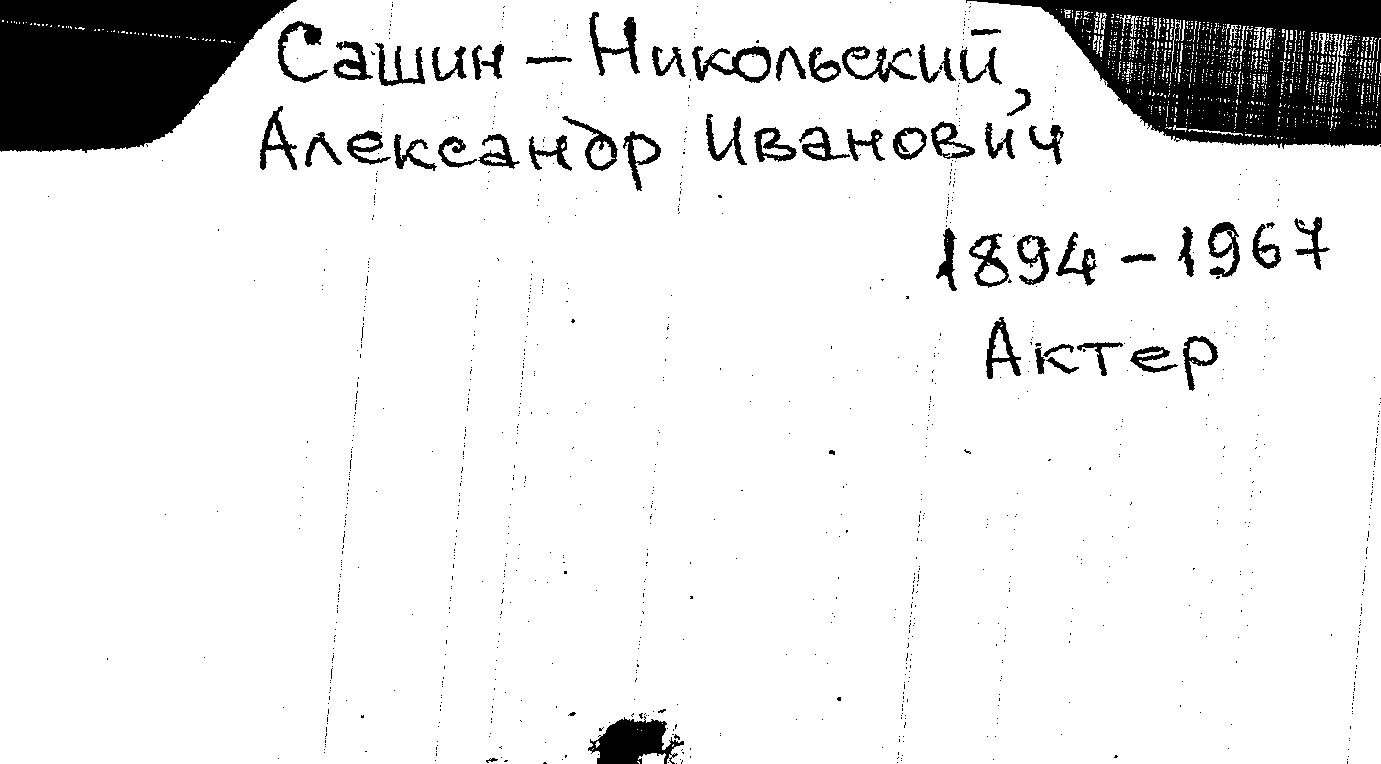 Сашин - Никольский,
Александр Иванович
1894 - 1967
Актер